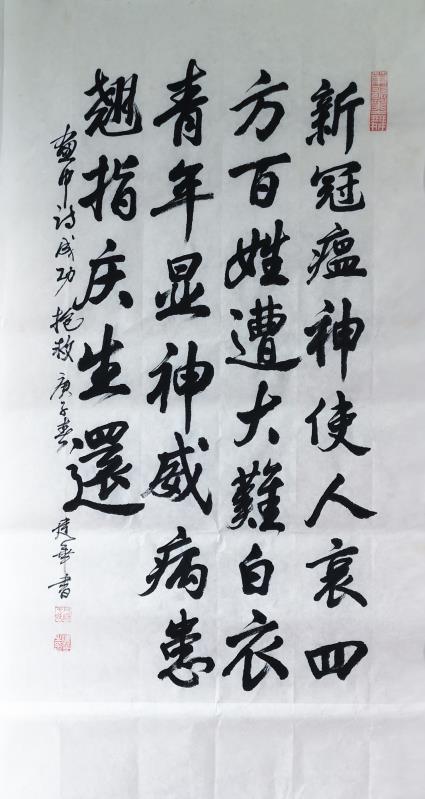 新冠瘟神使人哀四
方百姓遭大難白衣
青年显神威病患
翘指庆生還
画中诗成功抢救庚子春
建華书